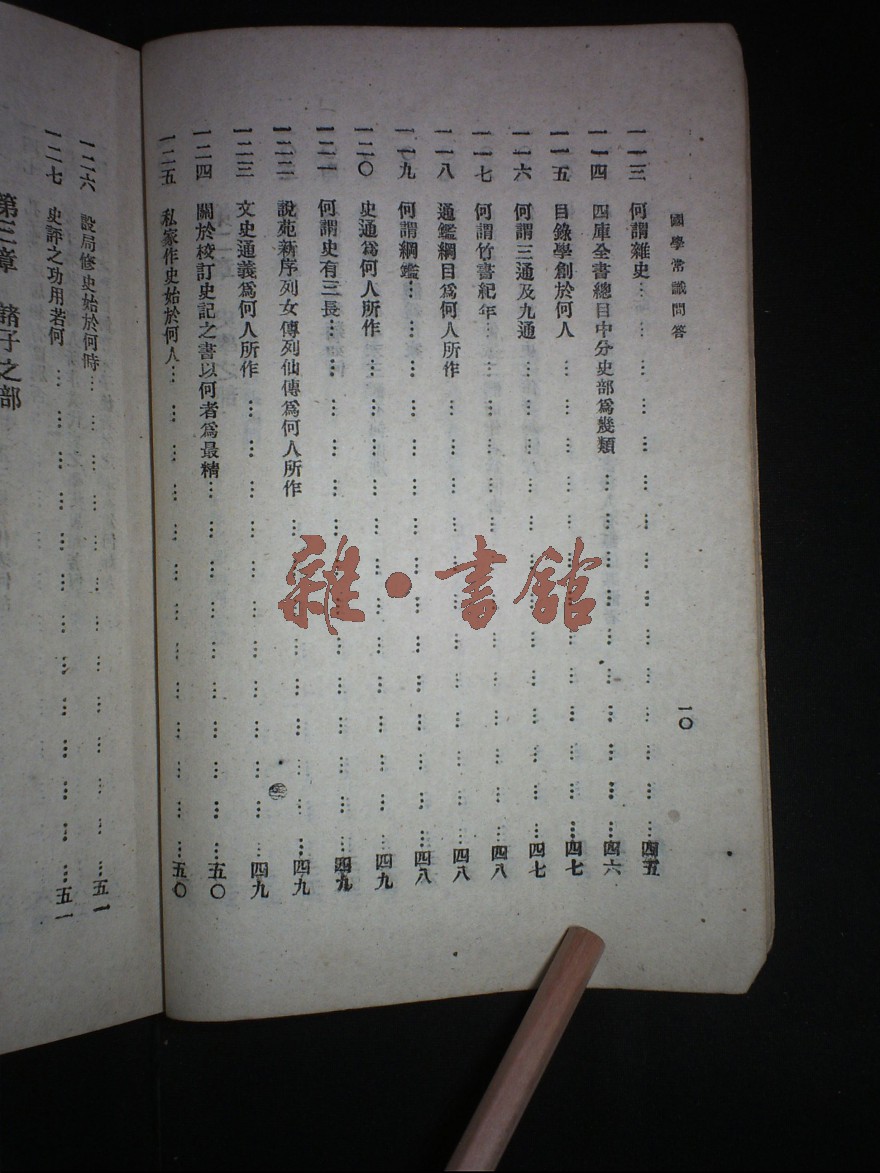 國學常識問答
一〇
一一三 何謂雜史… … … … … … … … … … … …四五
一一四 四庫全書總目中分史部爲幾類 … … … … … … … …四六
一一五 目錄學創於何人 … … … … … … … … … …四七
一一六 何謂三通及九通 … … … … … … … … … …四七
一一七 何謂竹書紀年… … … … … … … … … … …四八
一一八 通鑑綱目爲何人所作 … … … … … … … … …四八
一一九 何謂綱鑑… … … … … … … … … … … …四八
一二〇 史通爲何人所作 … … … … … … … … … …四九
一二一 何謂史有三長… … … … … … … … … … …四九
一二二 說苑新序列女傳列仙傳爲何人所作 … … … … … …四九
一二三 文史通義爲何人所作 … … … … … … … … …四九
一二四 關於校訂史記之書以何者爲最精… … … … … … …五〇
一二五 私家作史始於何人… … … … … … … … … …五〇
一二六 設局修史始於何時… … … … … … … … … …五一
一二七 史評之功用若何 … … … … … … … … … …五一
第三章 諸子之部
雜·書館